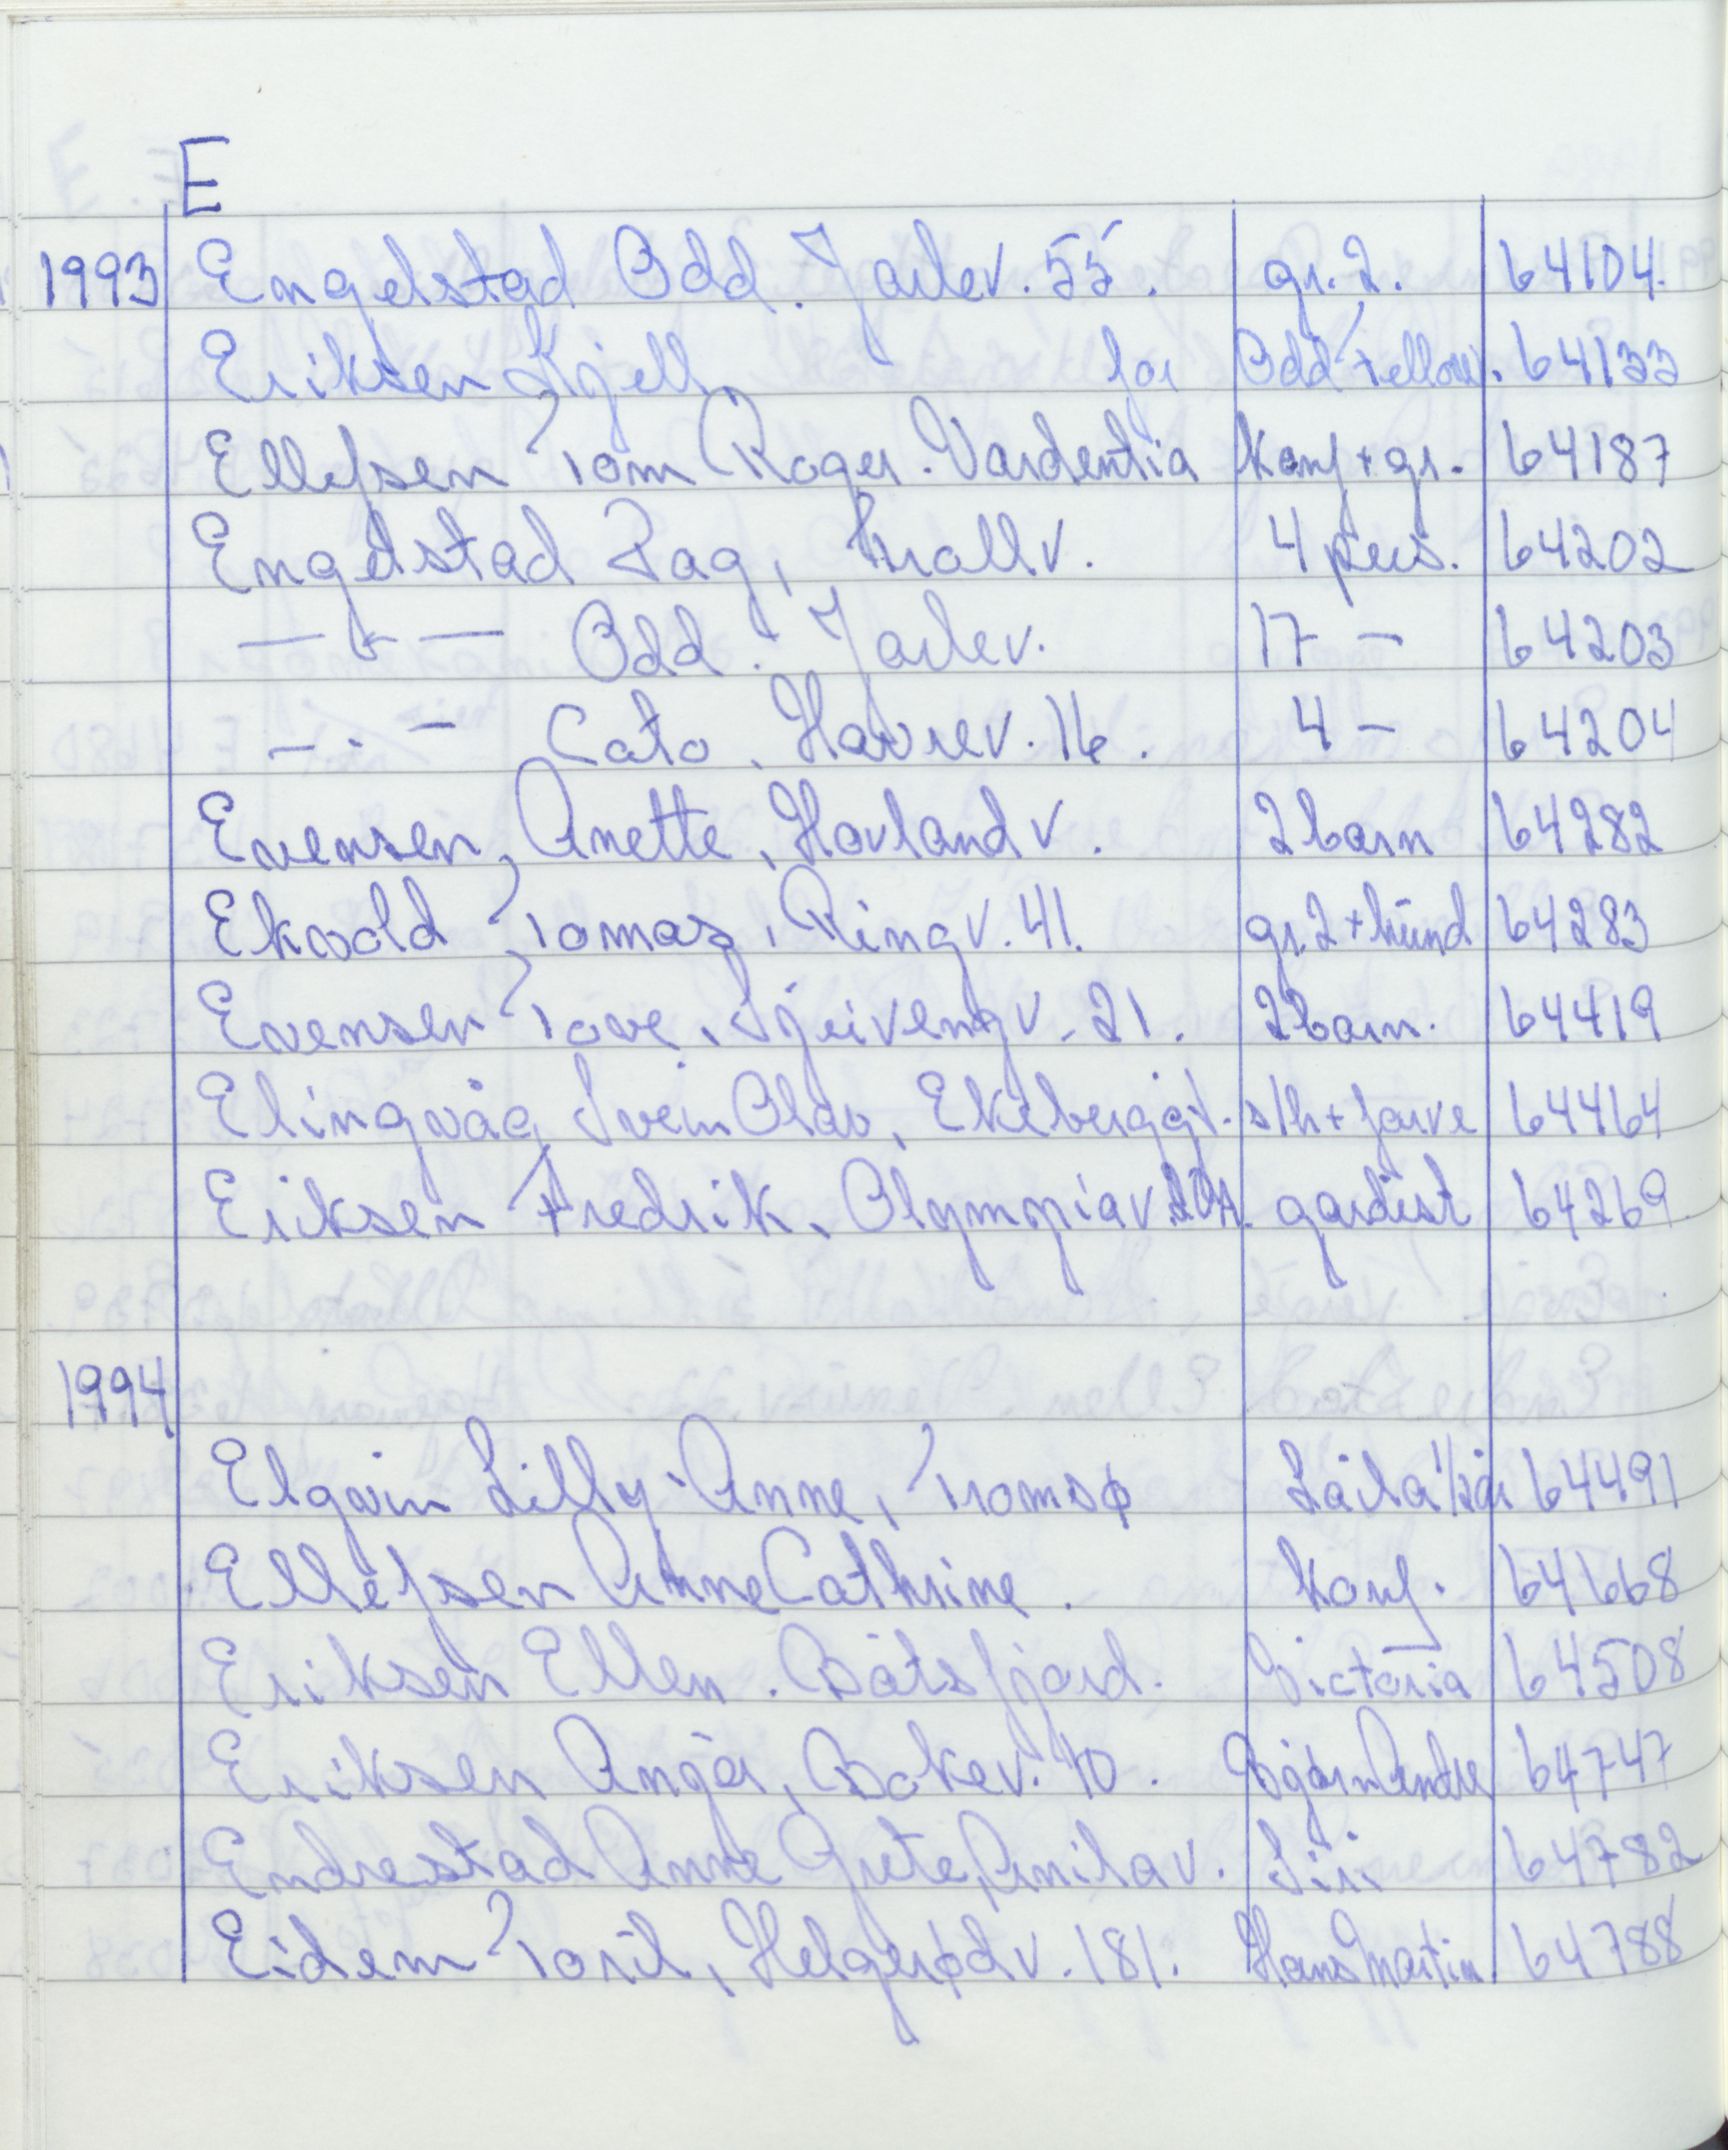 E
1993 Engelstad Odd. Jarlev. 55. gr. 2. 64104.
Eriksen Kjell, for Odd Fellow. 64133
Ellefsen Tom Roger. Vardentia Konf + gr. 64187
Engelstad Dag, Trollv. 4 pers. 64202
— " — Odd. Jarlev. 17 - 64203
— . — Cato, Havrev. 16. 4 - 64204
Evensen, Anette, Hovland v. 2 barn 64282
Ekvold Tomas, Ringv. 41. gr. 2 + hund 64283
Evensen Tove, v. 21. 2 barn. 64419
Elingvåg Svein Olav, Ekeberggt. s/h + farve 64464
Eriksen Fredrik, Olympiav. gardist 64269
1994
Elgvin Lilly-Anne, Tromsø Laila 1/2 år 64491
Ellefsen Anne Cathrine. Konf. 64668
Eriksen Ellen. Båtsfjord. Victoria 64508
Eriksen Anger, Bøkev. 40. Bjørn Andre 64747
Endrestad Anne Grete, Anilav. Siri 64782
Eidem Toril, Helgerødv. 181. Hans Martin 64788